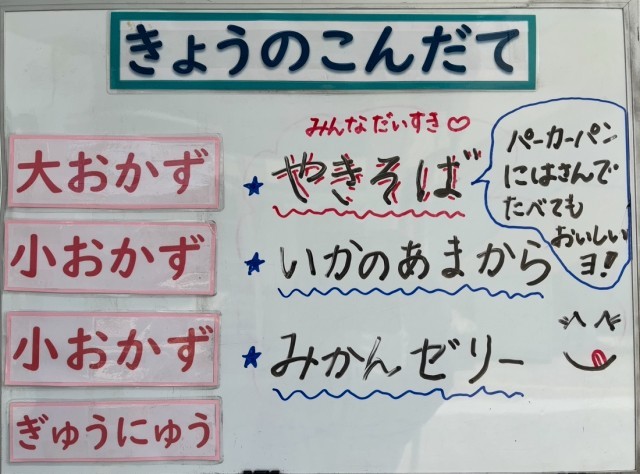 きょうのこんだて
みんなだいすき♡
大おかず
★やきそば
パーカーパン
にはさんで
たべても
おいしい
ヨ!
小おかず
★いかのあまから
小おかず
★みかんゼリー
ぎゅうにゅう